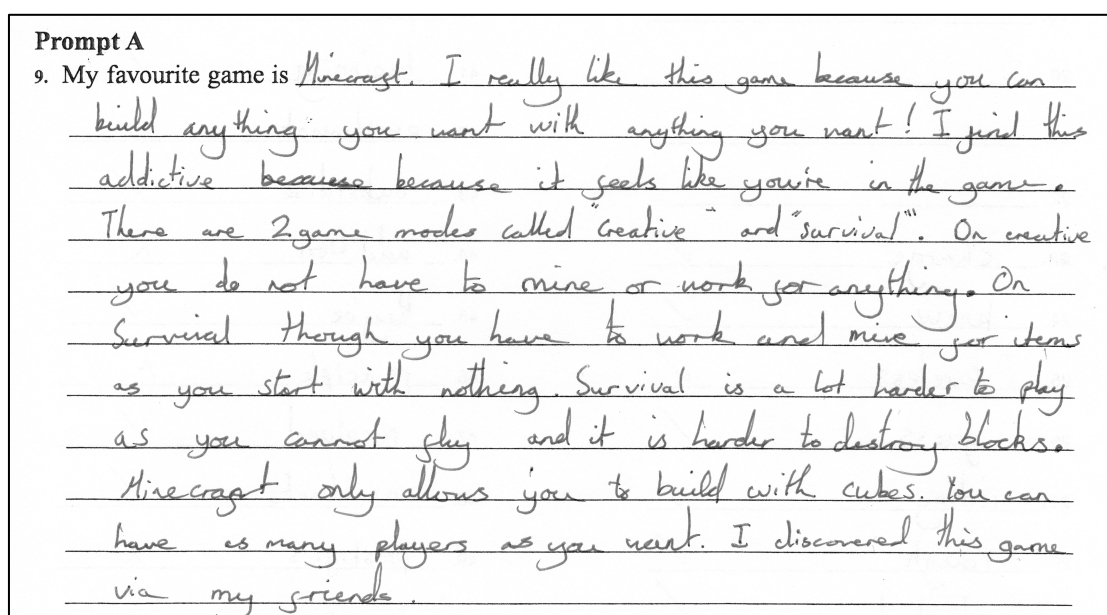 Prompt A
9. My favourite game is Minecraft. I really like this game because you can
build anything you want with anything you want! I find this
addictive because because it feels like you're in the game.
There are 2 game modes called "Creative" and "survival". On creative
you do not have to mine or work for anything. On
Survival though you have to work and mine for items
as you start with nothing. Survival is a lot harder to play
as you cannot fly and it is harder to destroy blocks.
Minecraft only allows you to build with cubes. You can
have as many players as you want. I discovered this game
via my friends.